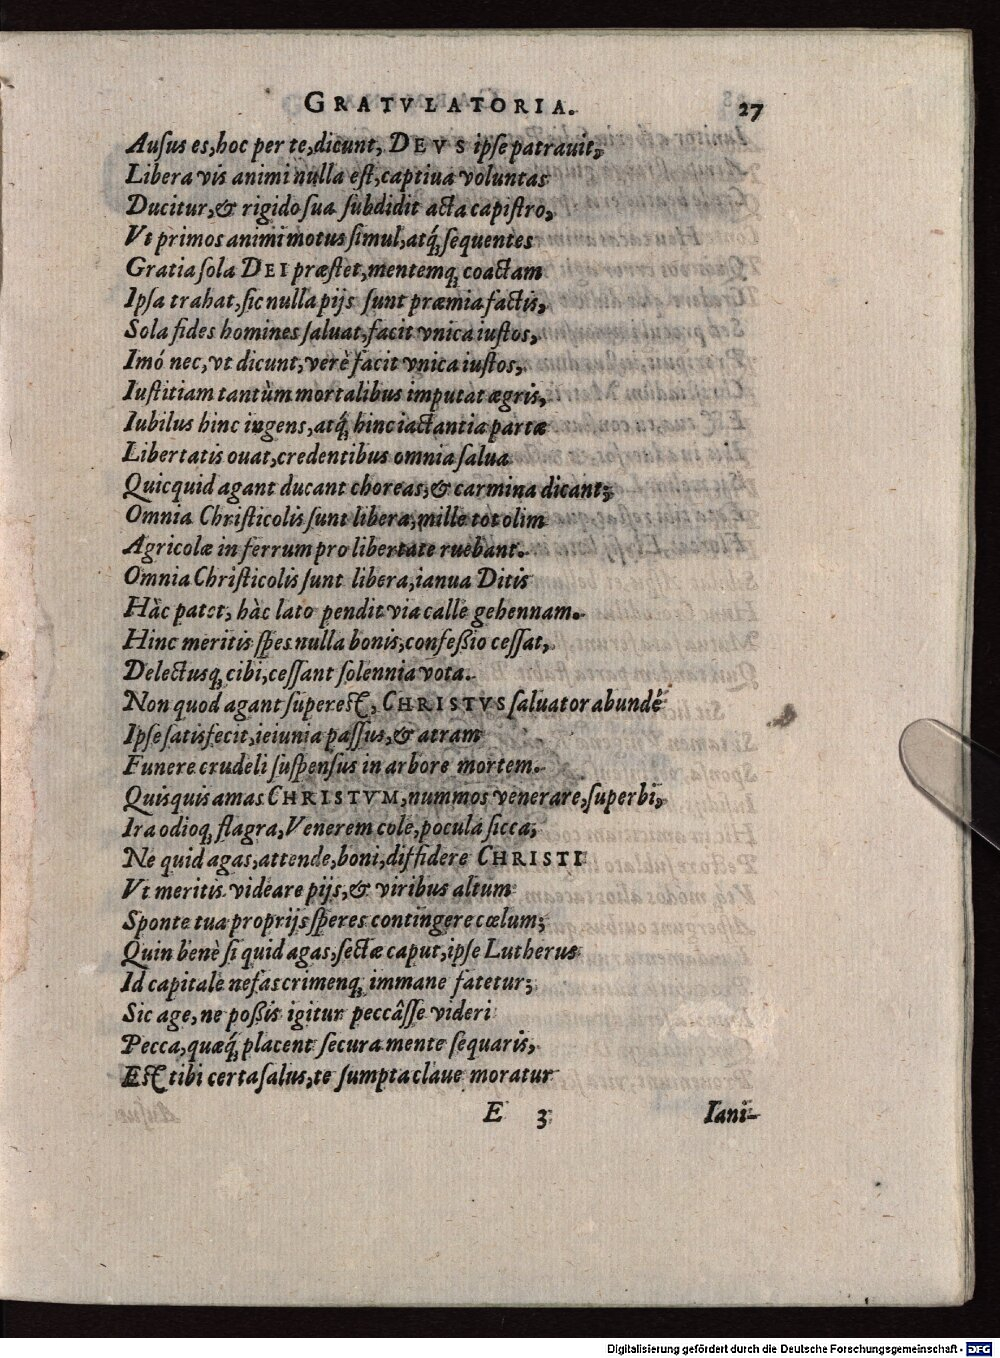 GRATVLATORIA. 27
Auſus es, hoc per te, dicunt, DEVS ipſe patrauit,
Libera vis animi nulla eſt, captiua voluntas
Ducitur, & rigido ſua ſubdidit acta capiſtro,
Vt primos animi motus ſimul, atq́ꝫ ſequentes
Gratia ſola DEI præſtet, mentemqꝫ coactam
Ipſa trahat, ſic nulla pijs ſunt præmia factis,
Sola fides homines ſaluat, facit vnica iuſtos,
Imó nec, vt dicunt, verè facit vnica iuſtos,
Iuſtitiam tantùm mortalibus imputat ægris,
Iubilus hinc ingens, atq́ꝫ hinc iactantia partæ
Libertatis ouat, credentibus omnia ſalua
Quicquid agant ducant choreas, & carmina dicant;
Omnia Chriſticolis ſunt libera, mille tot olim
Agricolæ in ferrum pro libertate ruebant.
Omnia Chriſticolis ſunt libera, ianua Ditis
Hàc patet, hàc lato pendit via calle gehennam.
Hinc meritis ſpes nulla bonis, confeßio ceſſat,
Delectusqꝫ cibi, ceſſant ſolennia vota.
Non quod agant ſupereſt, CHRISTVS ſaluator abundé
Ipſe ſatisfecit, ieiunia paſſus, & atram
Funere crudeli ſuſpenſus in arbore mortem.
Quisquis amas CHRISTVM, nummos venerare, ſuperbi,
Ira odioqꝫ flagra, Venerem cole, pocula ſicca;
Ne quid agas, attende, boni, diffidere CHRISTI
Vt meritis videare pijs, & viribus altum
Sponte tua proprijs ſperes contingere cœlum;
Quin benè ſi quid agas, ſectæ caput, ipſe Lutherus
Id capitale nefas crimenqꝫ immane fatetur;
Sic age, ne poßis igitur peccâſſe videri
Pecca, quæq́ꝫ placent ſecura mente ſequaris,
Eſt tibi certa ſalus, te ſumpta claue moratur
E 3 Iani-
Digitalisierung gefördert durch die Deutsche Forschungsgemeinschaft - DFG